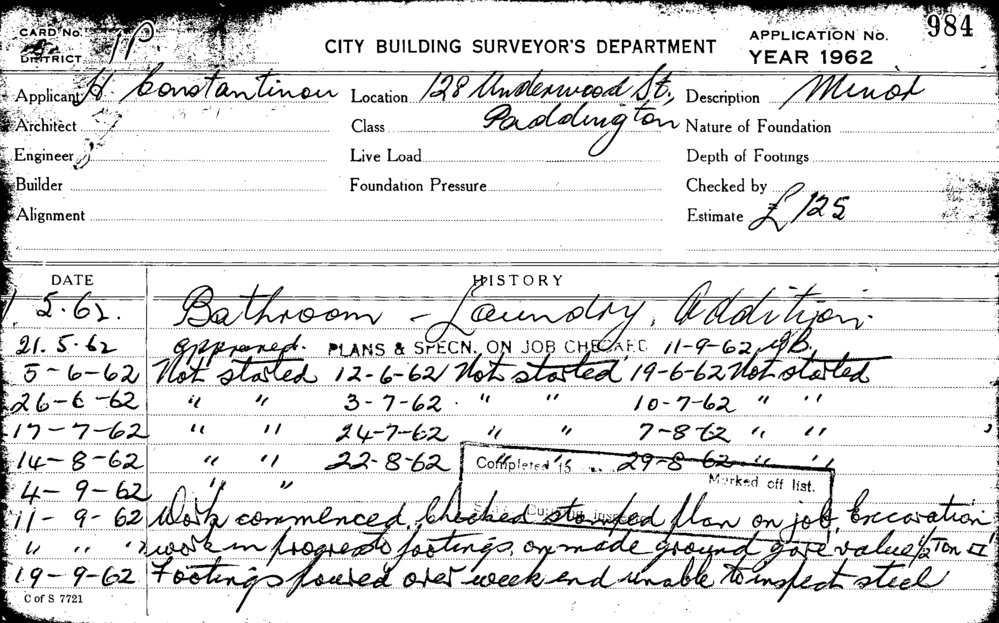 CARD No.
DISTRICT
CITY BUILDING SURVEYOR'S DEPARTMENT
APPLICATION No. 984
YEAR 1962
Applicant H. Constantinou Location 128 Underwood St., Paddington Description Minor
Architect Class Nature of Foundation
Engineer Live Load Depth of Footings
Builder Foundation Pressure Checked by
Alignment Estimate £125
DATE HISTORY
1.5.62. Bathroom - Laundry, Addition.
21.5.62 approved. PLANS & SPECN. ON JOB CHECKED 11-9-62
5-6-62 Not started 12-6-62 Not started 19-6-62 Not started
26-6-62 " " 3-7-62 " " 10-7-62 " "
17-7-62 " " 24-7-62 " " 7-8-62 " "
14-8-62 " " 22-8-62 " " 29-8-62 " "
Completed
Marked off list.
4-9-62 " "
11-9-62 Work commenced, Checked stamped plan on job, Excavation
" " " work in progress footings on made ground gave value 1/2 Ton
19-9-62 Footings poured over week end unable to inspect steel
C of S 7721